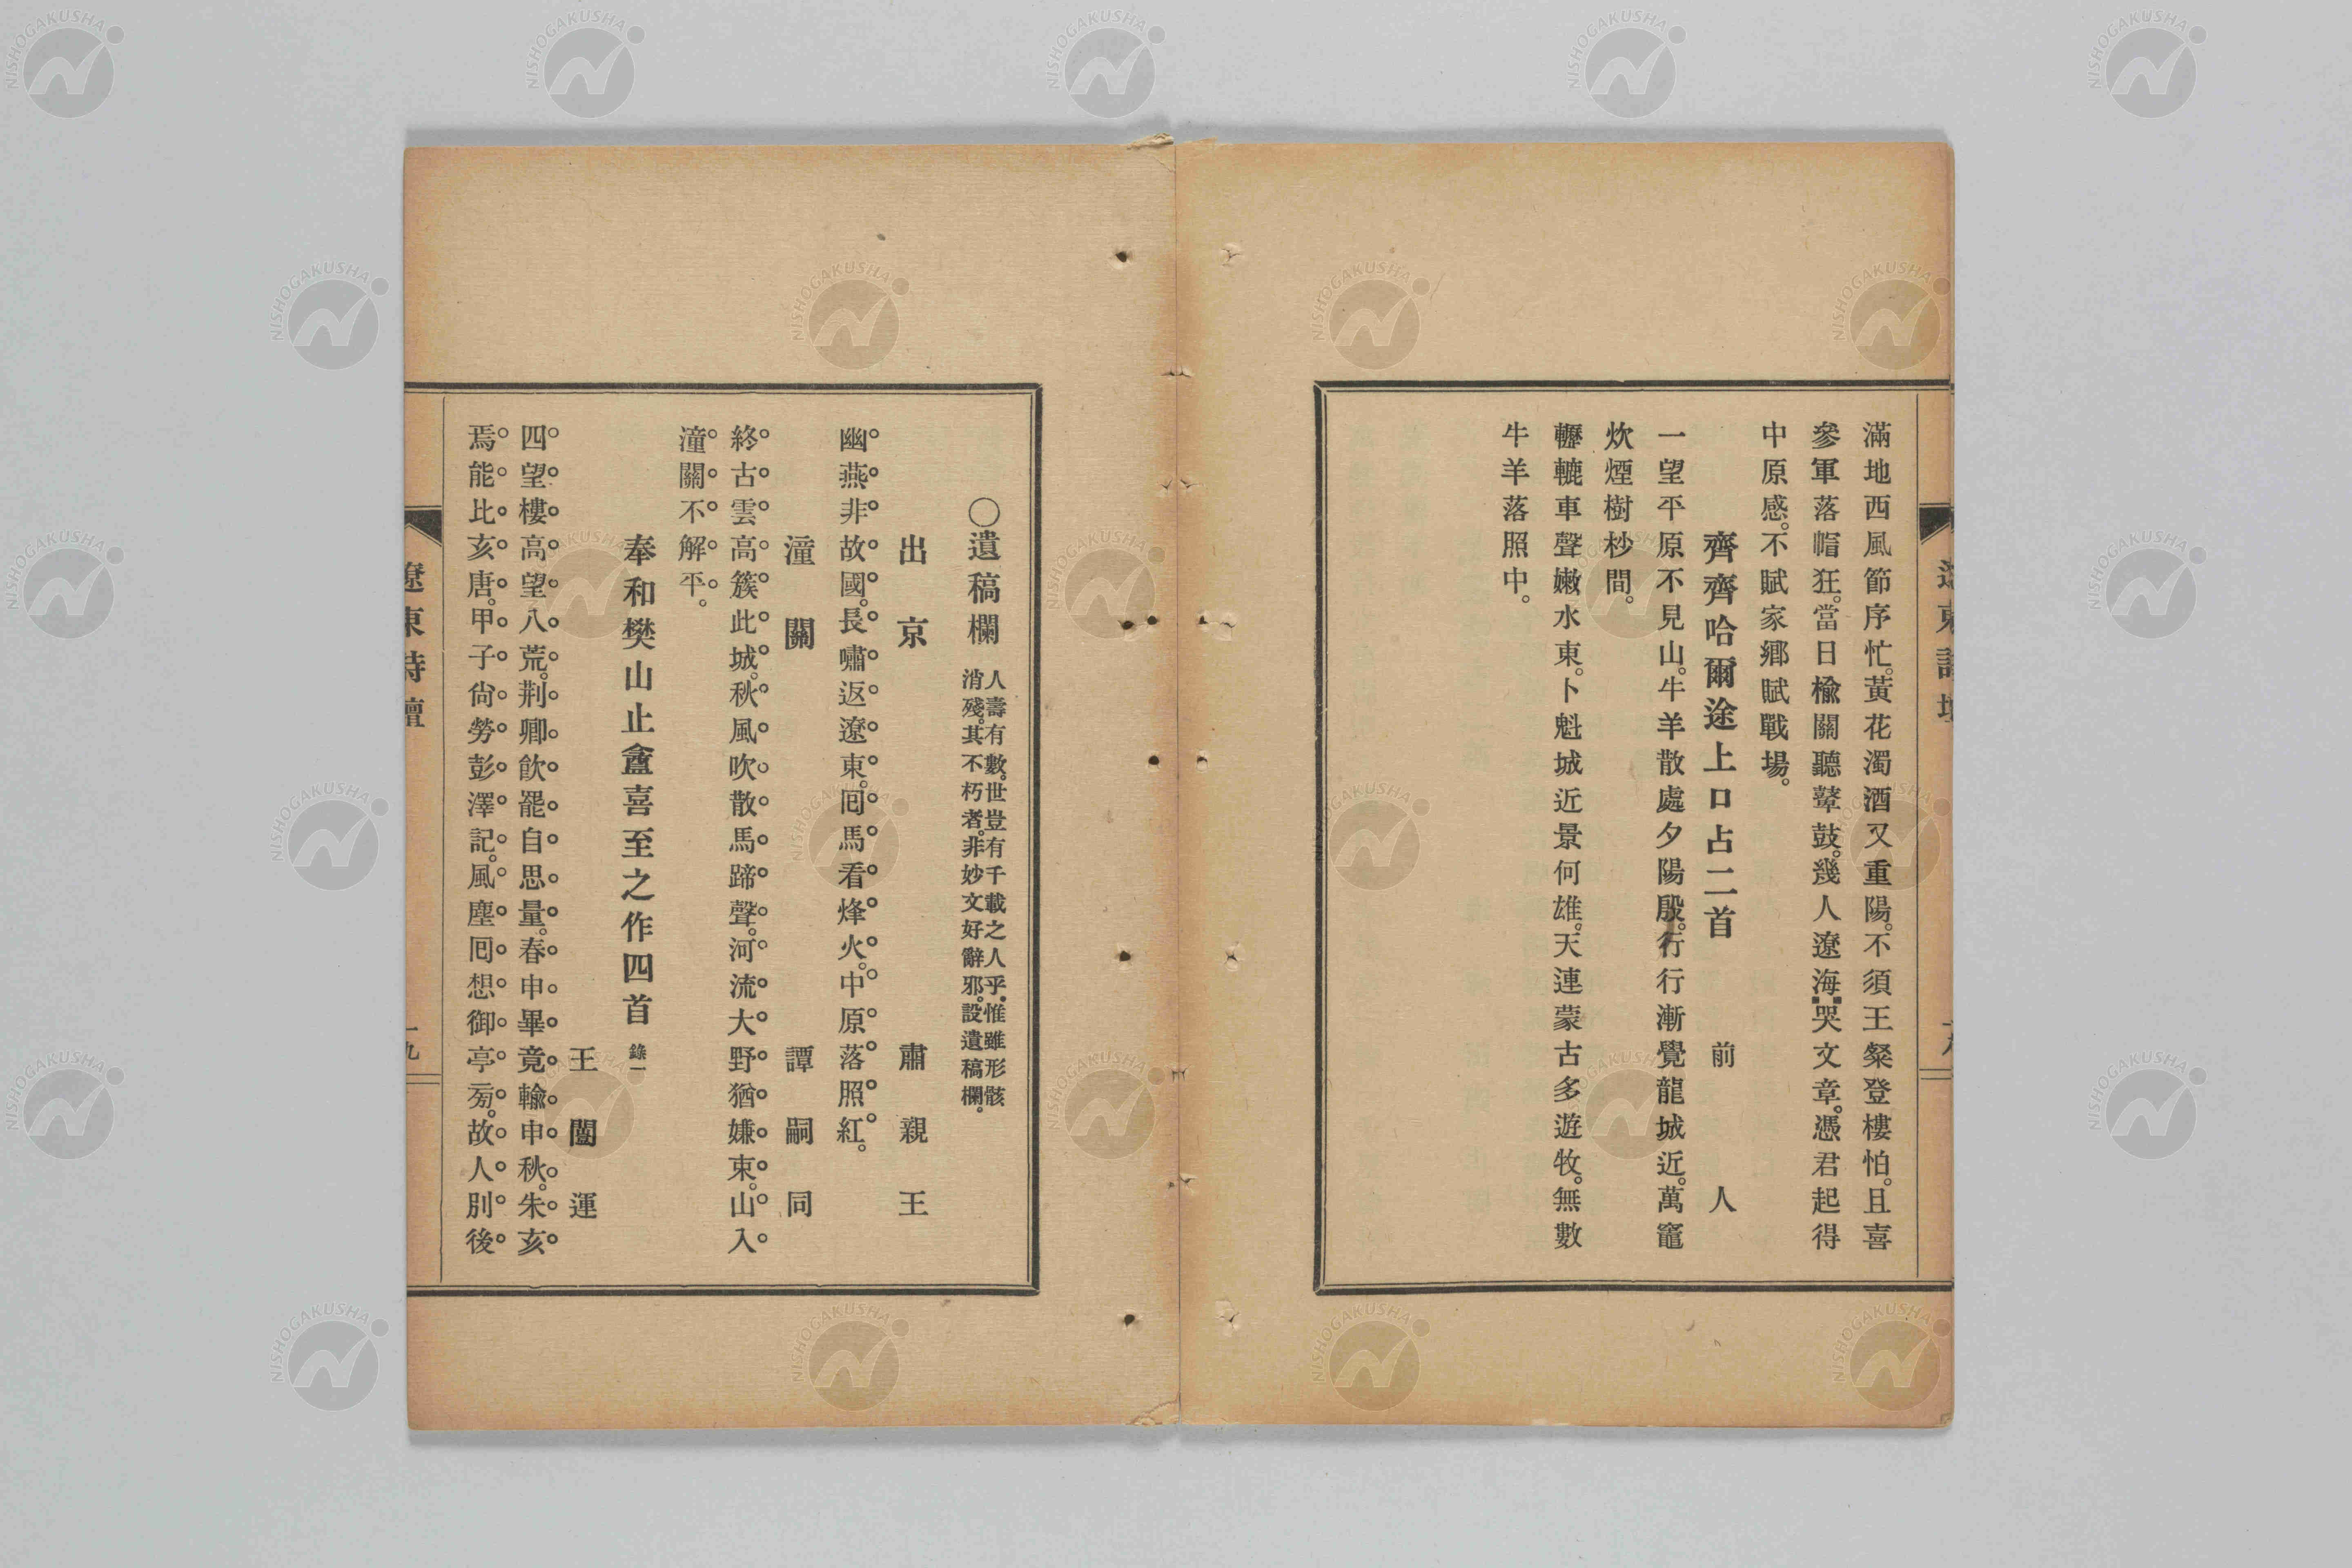 滿地西風節序忙。黃花濁酒又重陽。不須王粲登樓怕。且喜
參軍落帽狂。當日楡關聽鼙鼓。幾人遼海哭文章。憑君起得
中原感。不賦家鄕賦戰場。
齊齊哈爾途上口占二首 前人
一望平原不見山。牛羊散處夕陽殷。行行漸覺龍城近。萬竈
炊煙樹杪間。
轣轆車聲嫩水東。卜魁城近景何雄。天連蒙古多遊牧。無數
牛羊落照中。
〇遺稿欄
人壽有數。世豈有千載之人乎。惟雖形骸
消殘。其不朽者。非妙文好辭邪。設遺稿欄。
出京 肅親王
幽燕非故國。長嘯返遼東。囘馬看烽火。中原落照紅。
潼關 譚嗣同
終古雲高簇此城。秋風吹散馬蹄聲。河流大野猶嫌束。山入
潼關不解平。
奉和樊山止盦喜至之作四首 錄一
王闓運
四望樓高望八荒。荆卿飮罷自思量。春申畢竟輸申秋。朱亥
焉能比亥唐。甲子尙勞彭澤記。風塵囘想御亭旁。故人別後
遼東詩壇
十九
NISHOGAKUSHA